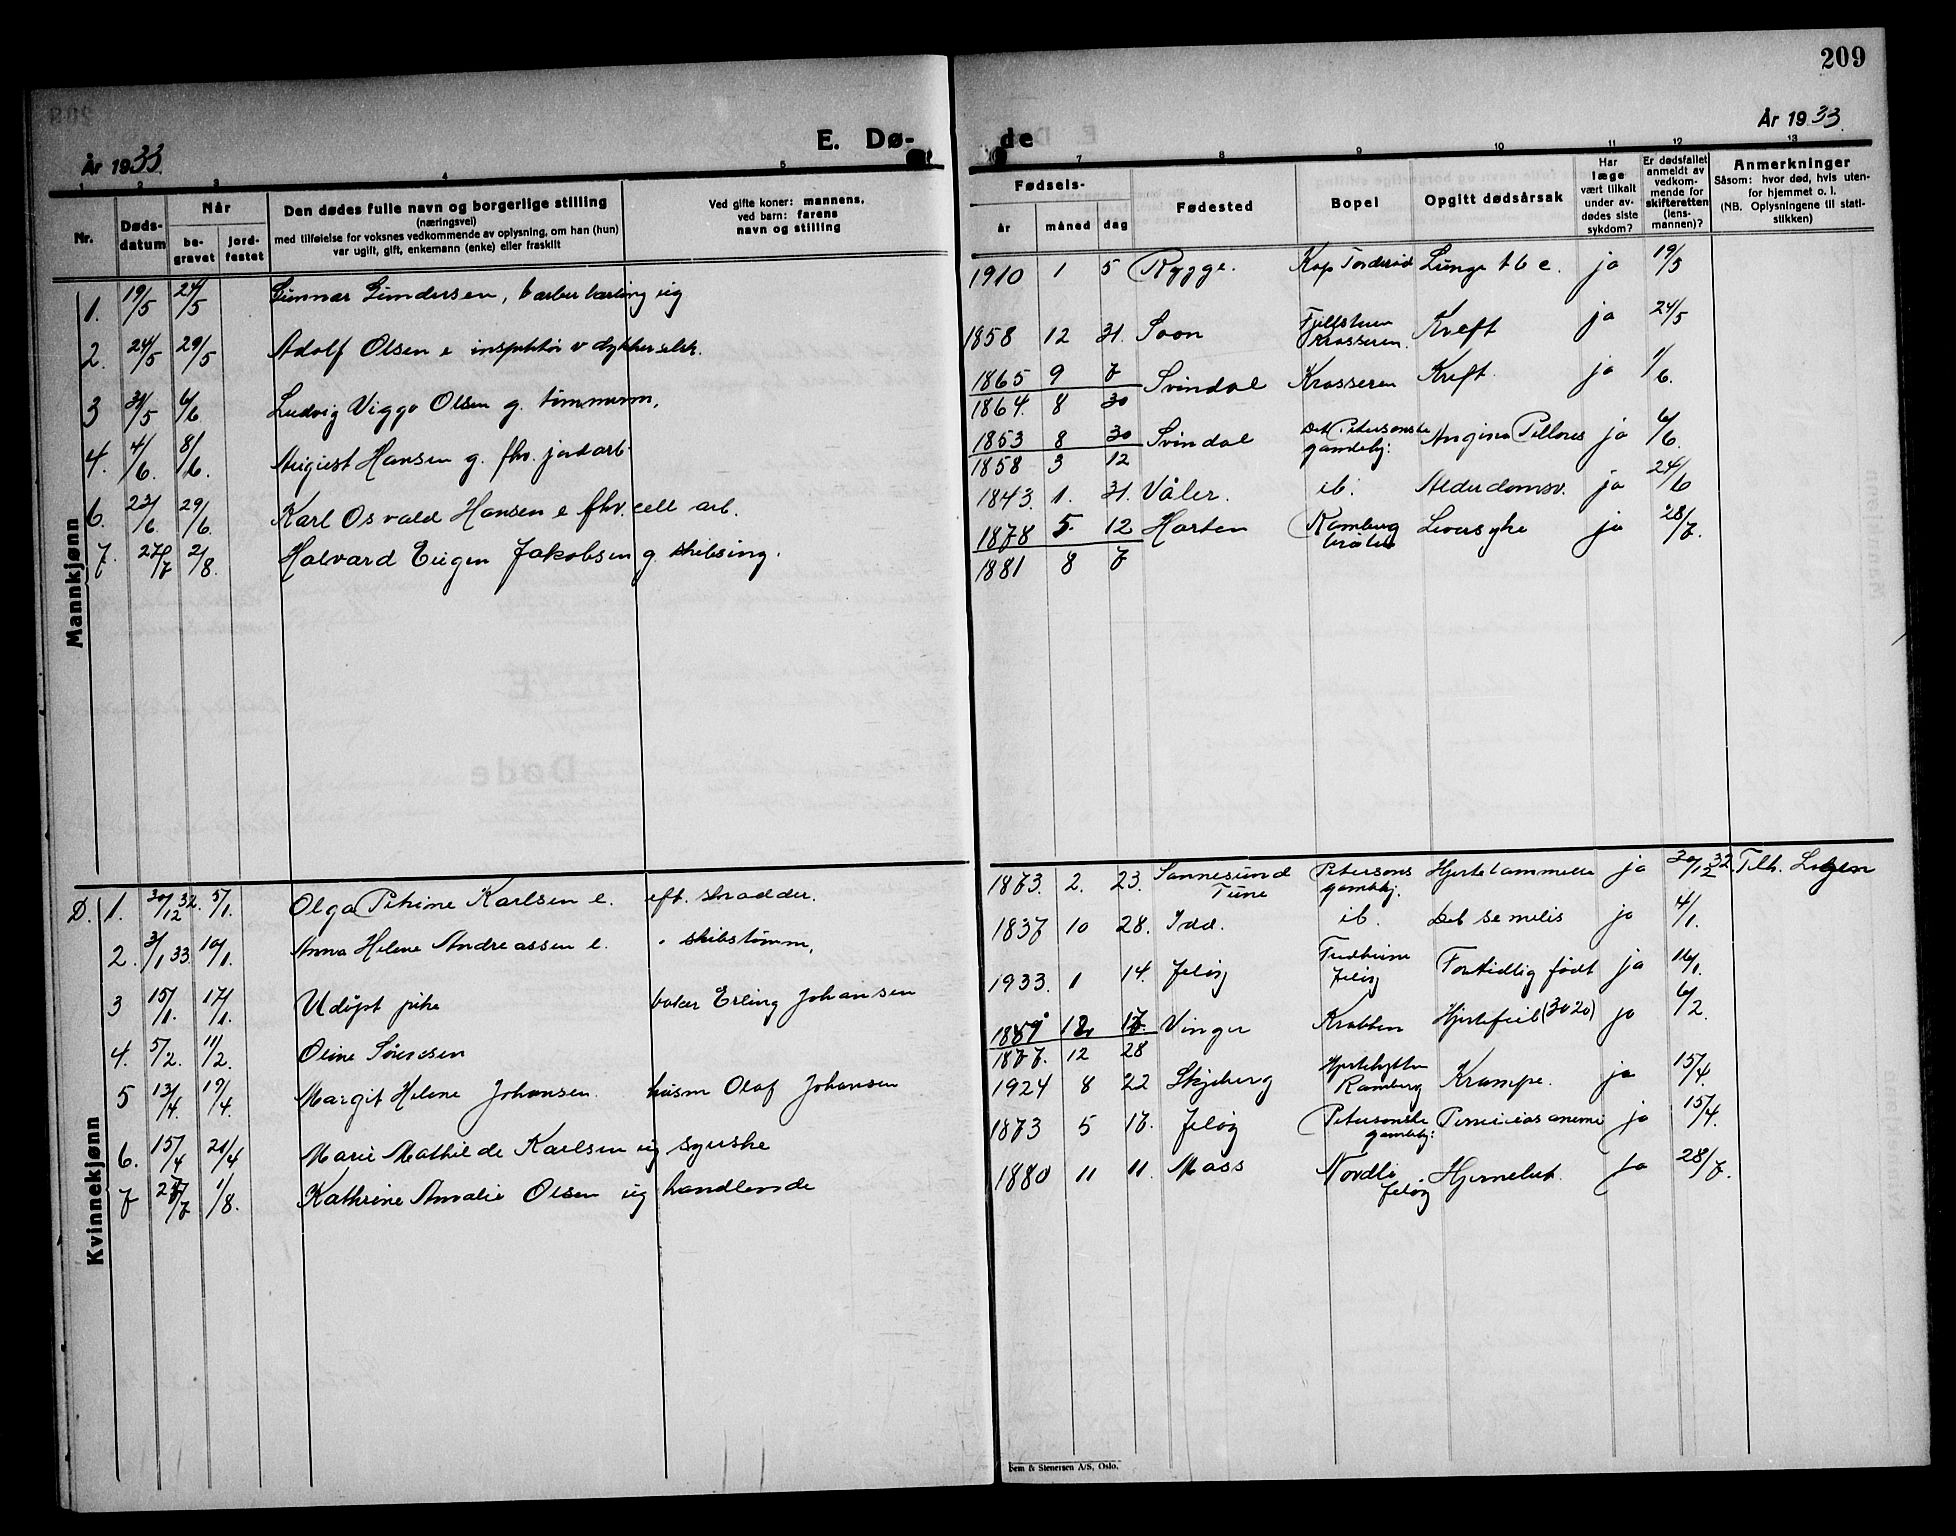 209
År 1933.
E. Dø-
de
År 1933.
1 2 3 4 5
7 8 9 10 11 12 13
Nr.
Døds-
datum
Når
be-
gravet
jord-
festet
Den dødes fulle navn og borgerlige stilling
(næringsvei)
med tilføielse for voksnes vedkommende av oplysning, om han (hun)
var ugift, gift, enkemann (enke) eller fraskilt
Ved gifte koner: mannens,
ved barn: farens
navn og stilling
Fødsels-
år måned dag
Fødested
Bopel
Opgitt dødsårsak
Har
læge
vært tilkalt
under av-
dødes siste
sykdom?
Er dødsfallet
anmeldt av
vedkom-
mende for
skifteretten
(lens-
mannen)?
Anmerkninger
Såsom: hvor død, hvis uten-
for hjemmet o. l.
(NB. Oplysningene til stati-
stikken)
Mannkjønn
1. 19/5 24/5 Gunnar Gundersen, barberlærling ug 1910 1 5 Rygge. Lunge tbc. ja 19/5
2. 24/5 29/5 Adolf Olsen e inspektør v dykkerselsk. 1858 12 31. Soon Fjellstuen Krosseren. Kreft ja 24/5
3 31/5 6/6 Ludvig Viggo Olsen g. tømmerm. 1865 9 7 Svindal Krosseren Kreft. ja 1/6.
1864. 8 30
4. 4/6. 8/6. August Hansen g. fhv. jordarb. 1853 8 30 Svindal Det Petersonske gamlehj: Angina Pectoris ja 6/6.
1858 3 12
6. 23/6. 29/6. Karl Osvald Hansen e fhv. cell arb. 1843. 1. 31. Våler. ib. Alderdomsv. ja 24/6
7. 27/7 2/8. Halvard Eugen Jakobsen g. skibsing. 1878 5. 12 Horten Ramberg bråten Leversyke ja 28/7.
1881 8 7
Kvinnekjønn
D. 1. 30/12 32. 5/1. Olga Petrine Karlsen e. eft. skrædder. 1873. 2. 23. Sannesund Tune Petersons gamlehj. Hjertelammelse ja 30/12 32. Tilh. Lutzen
2. 3/1 33. 10/1. Anna Helene Andreassen e. " skibstømm. 1837 10 28. Idd. ib. Deb senilis ja 4/1.
3 15/1. 17/1. Udøpt pike baker Erling Johansen 1933. 1 14. Jeløy Fredheim Jeløy Fortidlig født ja 16/1.
4. 5/2. 11/2. Oline Sørensen 1859 12 17. Vinger Krabben Hjertefeil (3020) ja 6/2.
1877. 12 28
5 13/4. 19/4. Margit Helene Johansen. husm Olaf Johansen 1924 8 22 Skjeberg Hjertehytten Ramberg Krampe. ja 15/4.
6. 15/4 21/4 Marie Mathilde Karlsen ug syerske 1873 5 17. Jeløy Petersonske gamlehj: Perniciøs anemi ja 15/4.
7 27/7 1/8. Kathrine Amalie Olsen ug handlende 1880 11 11. Moss Nordli Jeløy Hjernebet. ja 28/7.
Sem & Stenersen A/S, Oslo.